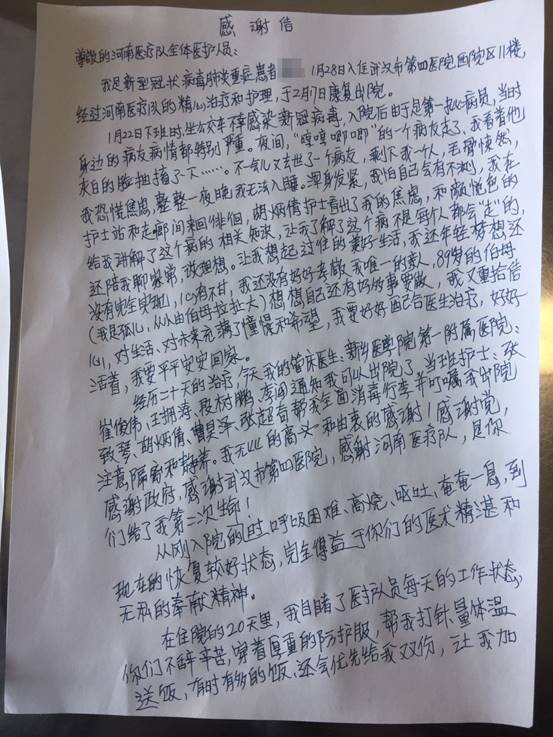 感谢信
尊敬的河南医疗队全体医护人员：
我是新型冠状病毒肺炎重症患者 1月28日入住武汉市第四医院西院区11楼，
经过河南医疗队的精心治疗和护理，于2月17日康复出院。
1月22日下班时坐公交车不幸感染新冠病毒，入院后由于是第一批病员，当时
身边的病友病情都特别严重。夜间，“哼哼唧唧”的一个病友走了，我看着他
灰白的脸抽搐了一下……。不一会儿又去世了一个病友，剩下我一个人，毛骨悚然，
我恐慌焦虑，整整一夜晚我无法入睡。浑身发紧，我怕自己会有不测，我在
护士站和走廊间来回徘徊，胡炳倩护士看出了我的焦虑，和颜悦色的
给我讲解了这个病的相关知识，让我了解了这个病不是每个人都会“走”的，
还陪我聊家常，谈理想。让我想起过往的美好生活，我还年轻梦想还
没有完全实现，心有不甘，我还没有好好孝敬我唯一的亲人，89岁的伯母
（我是孤儿，从小由伯母拉拉大）想想自己还有好多事要做，我又重拾信
心，对生活、对未来充满了憧憬和希望，我要好好配合医生治疗，好好
活着，我要平平安安回家。
经历二十天的治疗，今天我的管床医生：新乡医学院第一附属医院：
崔俊伟、王拥泽、段树鹏、李阁通知我可以出院了，当班护士：张
致琴、胡炳倩、曹昊泽、张超君帮我全面消毒行李并叮嘱我出院
注意隔离和静养。我无以的高兴和由衷的感谢！感谢党，
感谢政府，感谢武汉市第四医院，感谢河南医疗队，是你
们给了我第二次生命！
从刚入院的时呼吸困难、高烧、呕吐、奄奄一息，到
现在的恢复较好状态，完全得益于你们的医术精湛和
无私的奉献精神。
在住院的20天里，我目睹了医疗队员每天的工作状态，
你们不辞辛苦，穿着厚重的防护服，帮我打针、量体温
送饭，有时有多的饭，还会优先给我双份，让我加